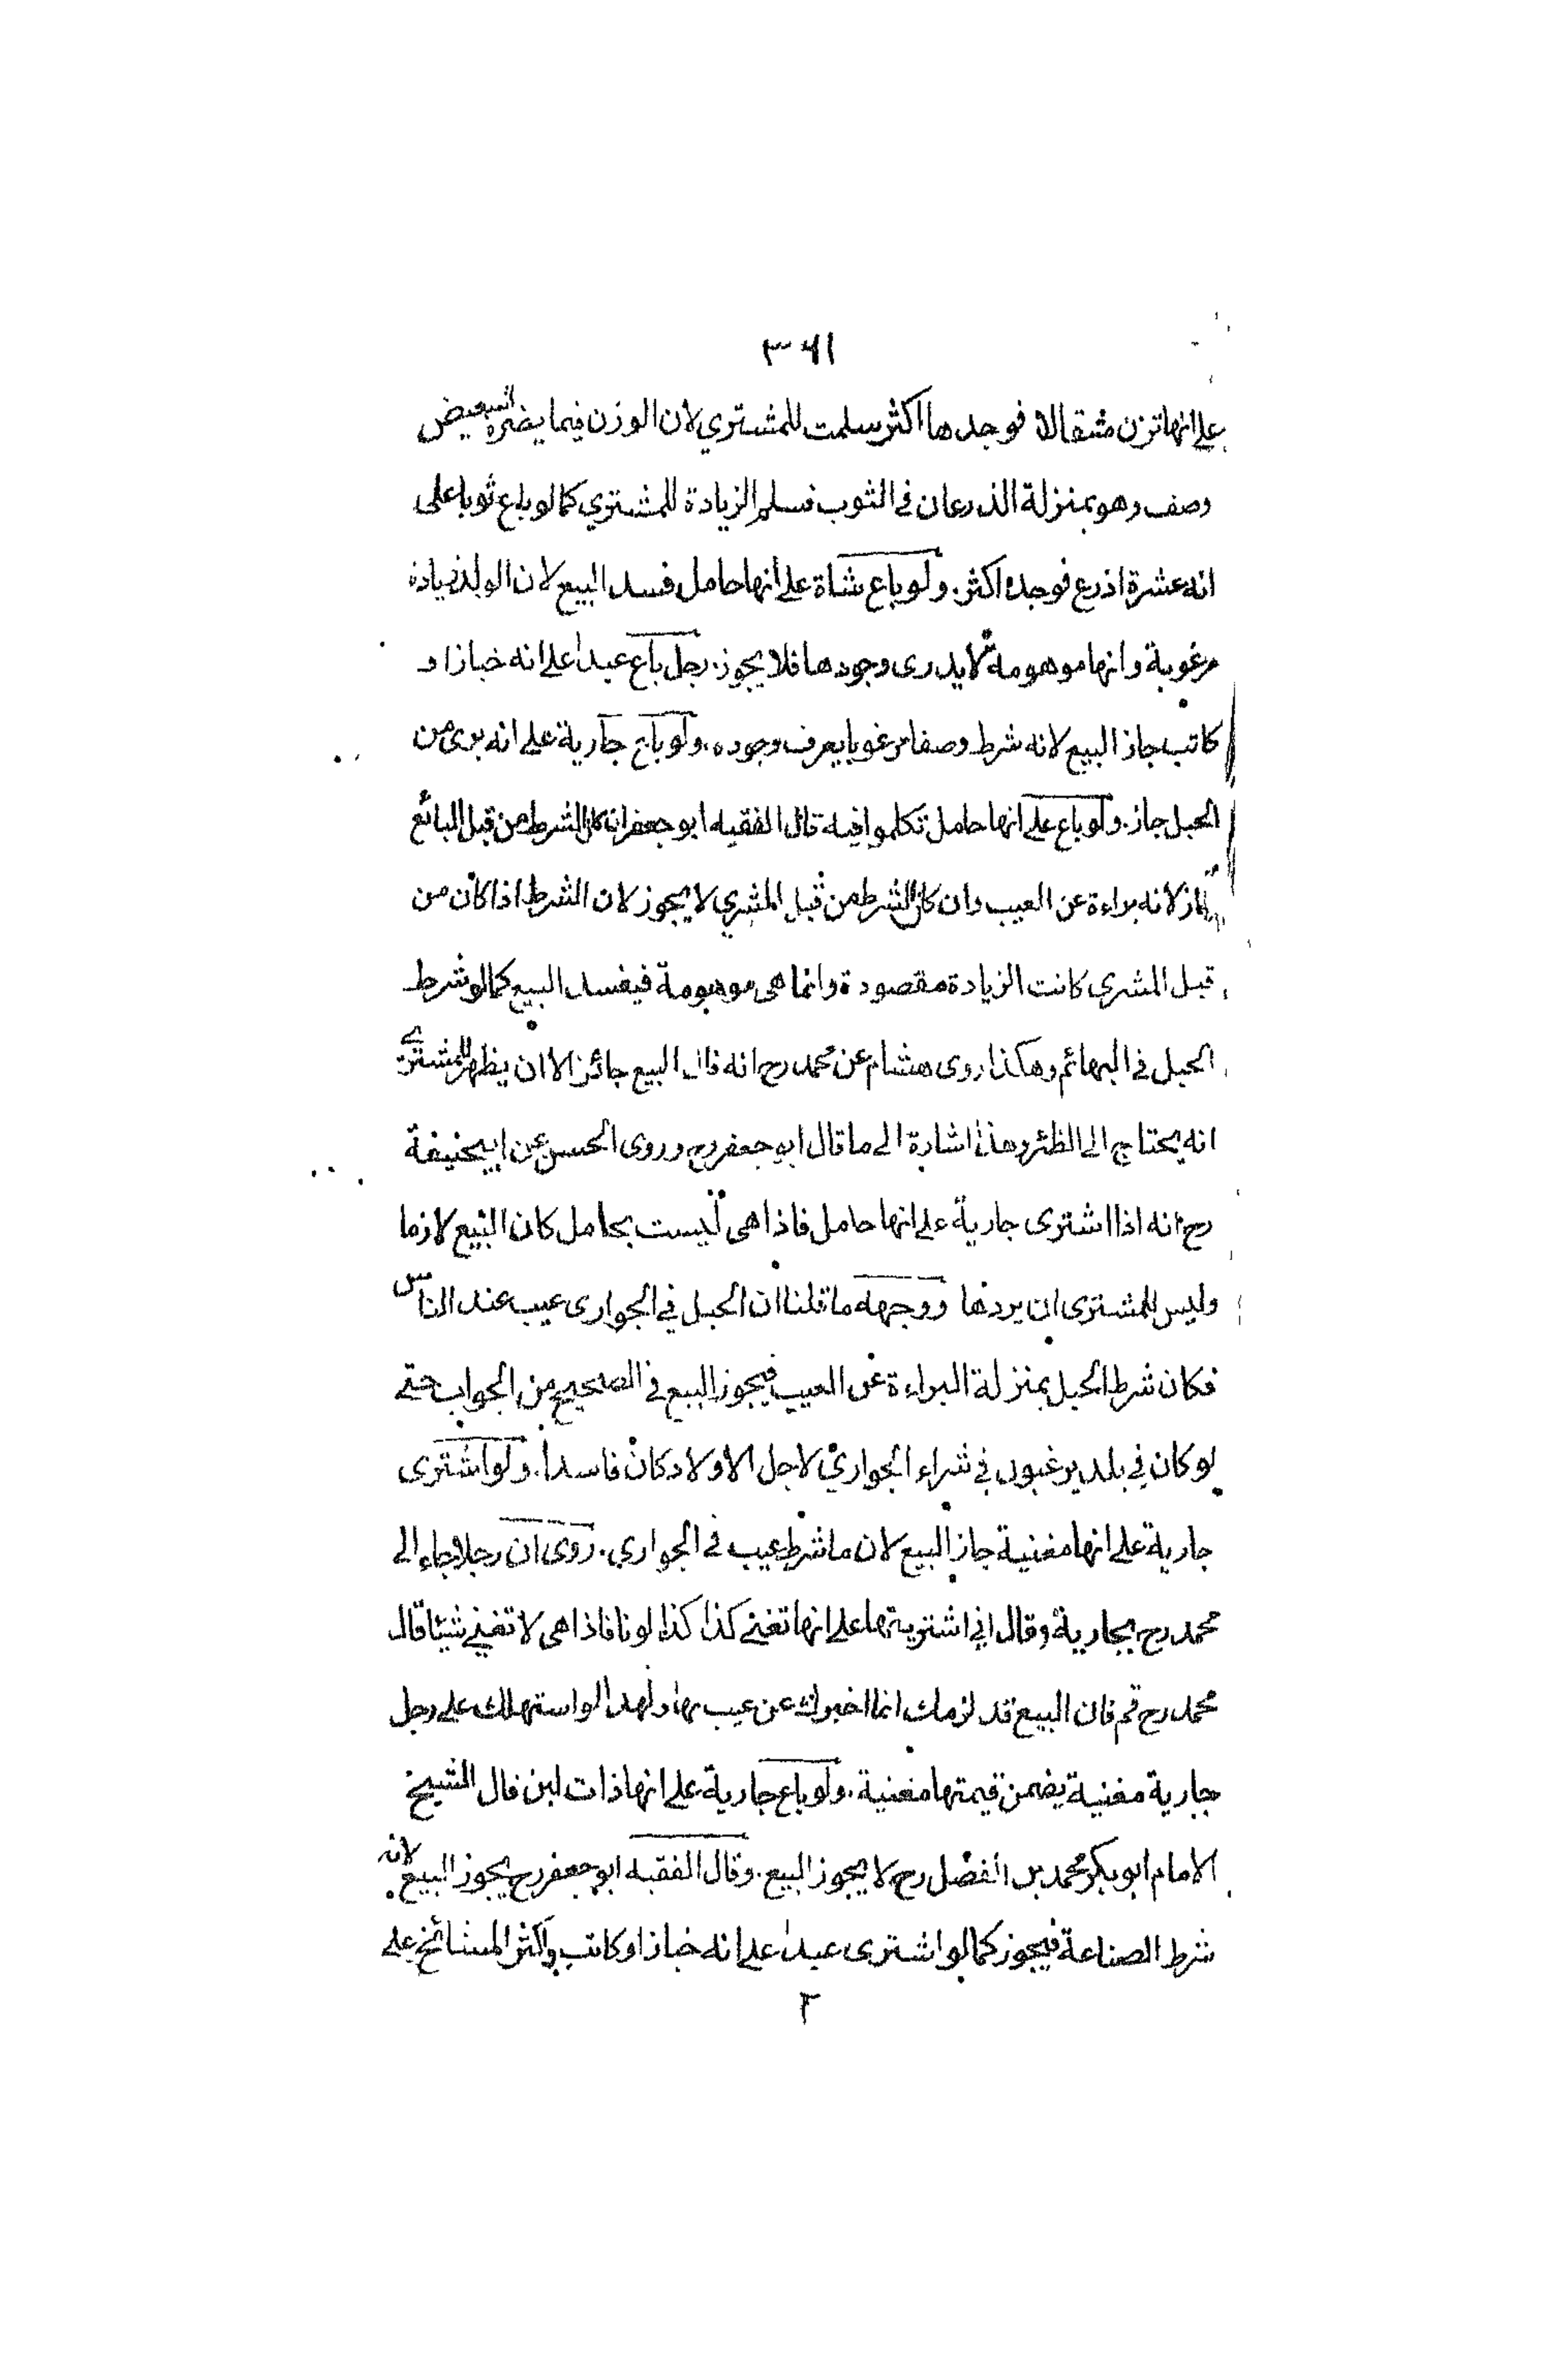 ٣٦١
على انها تزن مثقالا فوجدها اكثر سلمت للمشتري لان الوزن فيما يضره التبعيض
وصف وهو بمنزلة الذرعان في الثوب فسلم الزيادة للمشتري كما لو باع ثوبا على
انه عشرة اذرع فوجده اكثر. ولو باع شاة على انها حامل فسد البيع لان الولد زيادة
مرغوبة وانها موهومة لا يدرى وجودها فلا يجوز. رجل باع عبدا على انه خباز او
كاتب جاز البيع لانه شرط وصفا مرغوبا يعرف وجوده. ولو باع جارية على انه برئ من
الحبل جاز. ولو باع على انها حامل تكلموا فيه قال الفقيه ابو جعفر ان كان الشرط من قبل البائع
جاز لانه براءة عن العيب وان كان الشرط من قبل المشري لا يجوز لان الشرط اذا كان من
قبل المشري كانت الزيادة مقصودة وانما هي موهومة فيفسد البيع كما لو شرط
الحبل في البهائم وهكذا روى هشام عن محمد رح انه قال البيع جائز الا ان يظهر للمشتري
انه يحتاج الى الظئر وهذا اشارة الى ما قال ابو جعفر رح وروى الحسن عن ابيحنيفة
رح انه اذا اشترى جارية على انها حامل فاذا هي ليست بحامل كان البيع لازما
وليس للمشترى ان يردها ووجهه ما قلنا ان الحبل في الجوارى عيب عند الناس
فكان شرط الحبل بمنزلة البراءة عن العيب فيجوز البيع في الصحيح من الجواب حتى
لو كان في بلد يرغبون في شراء الجواري لاجل الاولاد كان فاسدا. ولو اشترى
جارية على انها مغنية جاز البيع لان ما شرط عيب في الجواري. روى ان رجلا جاء الى
محمد رح بجارية وقال اني اشتريتها على انها تغنى كذا كذا لونا فاذا هي لا تغني شيئا قال
محمد رح قم فان البيع قد لزمك انما اخبرك عن عيب بها ولهذا لو استهلك على رجل
جارية مغنية يضمن قيمتها مغنية. ولو باع جارية على انها ذات لبن قال الشيخ
الامام ابو بكر محمد بن الفضل رح لا يجوز البيع. وقال الفقيه ابو جعفر رح يجوز البيع لانه
شرط الصناعة فيجوز كما لو اشترى عبدا على انه خباز او كاتب واكثر المشائخ على
٢